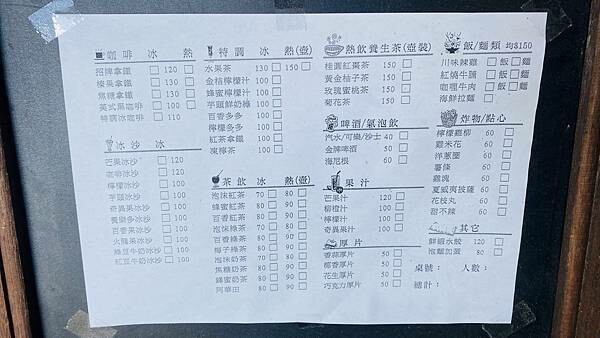 咖啡 冰 熱
招牌拿鐵 □ 120 □
榛果拿鐵 □ 130 □
焦糖拿鐵 □ 130 □
英式黑咖啡 □ 100 □
特調冰咖啡 110 □
冰沙 冰
芒果冰沙 □ 120
咖啡冰沙 □ 120
檸檬冰沙 □ 100
芋頭冰沙 □ 100
奇異果冰沙 □ 100
養樂多冰沙 □ 100
百香果冰沙 □ 100
火龍果冰沙 □ 100
綠豆牛奶冰沙 □ 100
紅豆牛奶冰沙 □ 100
特調 冰 熱(壺)
水果茶 130 □ 150 □
金桔檸檬汁 100 □
蜂蜜檸檬汁 100 □
芋頭鮮奶綠 100 □
百香多多 100 □
檸檬多多 100 □
紅茶拿鐵 100 □
凍檸茶 100 □
茶飲 冰 熱(壺)
泡沫紅茶 70 □ 80 □
蜂蜜紅茶 80 □ 90 □
百香紅茶 80 □ 90 □
泡沫綠茶 70 □ 80 □
百香綠茶 80 □ 90 □
梅子綠茶 80 □ 90 □
泡沫奶茶 70 □ 80 □
焦糖奶茶 80 □ 90 □
蜂蜜奶茶 80 □ 90 □
阿華田 80 □ 90 □
熱飲養生茶(壺裝)
桂圓紅棗茶 150 □
黃金柚子茶 150 □
玫瑰蜜桃茶 150 □
菊花茶 150 □
啤酒/氣泡飲
汽水/可樂/沙士 40 □
金牌啤酒 50 □
海尼根 60 □
果汁
芒果汁 120 □
柳橙汁 100 □
檸檬汁 100 □
奇異果汁 100 □
厚片
香蒜厚片 50 □
椰香厚片 50 □
花生厚片 50 □
巧克力厚片 50 □
飯/麵類 均$150
川味辣雞 □飯□麵
紅燒牛腩 □飯□麵
咖哩牛肉 □飯□麵
海鮮拉麵 □
炸物/點心
檸檬雞柳 60 □
雞米花 60 □
洋蔥圈 60 □
薯條 60 □
雞塊 60 □
夏威夷披薩 60 □
花枝丸 60 □
甜不辣 60 □
其它
鮮蝦水餃 120 □
泡麵加蛋 80 □
桌號: 人數:
總計: